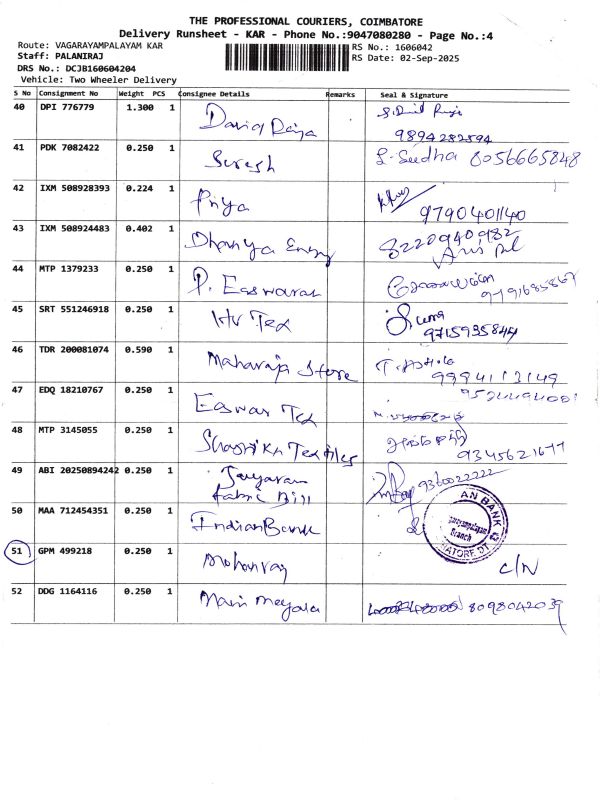 THE PROFESSIONAL COURIERS, COIMBATORE
Delivery Runsheet - KAR - Phone No.:9047080280 - Page No.:4
Route: VAGARAYAMPALAYAM KAR RS No.: 1606042
Staff: PALANIRAJ RS Date: 02-Sep-2025
DRS No.: DCJB160604204
Vehicle: Two Wheeler Delivery
S No Consignment No Weight PCS Consignee Details Remarks Seal & Signature
40 DPI 776779 1.300 1 David Raja
9894282594
41 PDK 7082422 0.250 1 Suresh L. Sudha 8056665848
42 IXM 508928393 0.224 1 Priya
9790401140
43 IXM 508924483 0.402 1 Dhanya Engg 8220940982
44 MTP 1379233 0.250 1 P. Easwaran
45 SRT 551246918 0.250 1 Tex
9715935844
46 TDR 200081074 0.590 1 Maharaja Store
9994113149
47 EDQ 18210767 0.250 1 Easwar Tex
48 MTP 3145055 0.250 1 Textiles
9345621677
49 ABI 20250894242 0.250 1 Jayaram 9360022222
Fabric Bill
50 MAA 712454351 0.250 1 Indian Bank
AN BANK
Branch
51 GPM 499218 0.250 1 Mohanraj C/N
52 DDG 1164116 0.250 1 8098042039